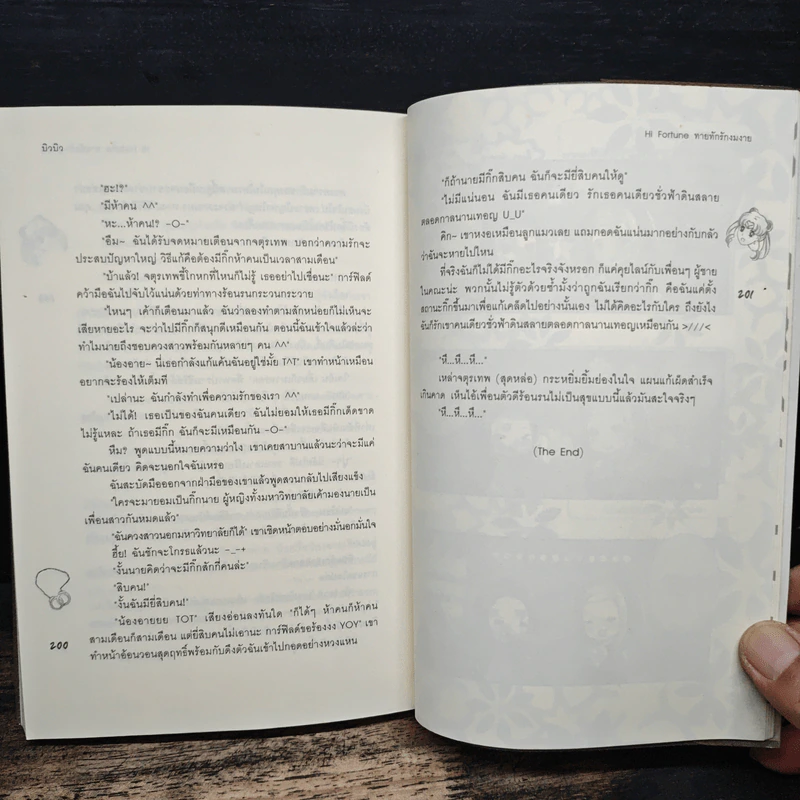 บิวบิว
"ฮะ!?"
"มีห้าคน ^^"
"หะ...ห้าคน!? -O-"
"อืม~ ฉันได้รับจดหมายเตือนจากจตุรเทพ บอกว่าความรักจะ
ประสบปัญหาใหญ่ วิธีแก้คือต้องมีกิ๊กห้าคนเป็นเวลาสามเดือน"
"บ้าแล้ว! จตุรเทพขี้โกหกที่ไหนก็ไม่รู้ เธออย่าไปเชื่อนะ" การ์ฟิลด์
คว้ามือฉันไปจับไว้แน่นด้วยท่าทางร้อนรนกระวนกระวาย
"ไหนๆ เค้าก็เตือนมาแล้ว ฉันว่าลองทำตามสักหน่อยก็ไม่เห็นจะ
เสียหายอะไร จะว่าไปมีกิ๊กก็สนุกดีเหมือนกัน ตอนนี้ฉันเข้าใจแล้วล่ะว่า
ทำไมนายถึงชอบควงสาวพร้อมกันหลายๆ คน ^^"
"น้องอาย~ นี่เธอกำลังแก้แค้นฉันอยู่ใช่มั้ย T^T" เขาทำหน้าเหมือน
อยากจะร้องไห้เต็มที
"เปล่านะ ฉันกำลังทำเพื่อความรักของเรา ^^"
"ไม่ได้! เธอเป็นของฉันคนเดียว ฉันไม่ยอมให้เธอมีกิ๊กเด็ดขาด
ไม่รู้แหละ ถ้าเธอมีกิ๊ก ฉันก็จะมีเหมือนกัน -O-"
หืม? พูดแบบนี้หมายความว่าไง เขาเคยสาบานแล้วนะว่าจะมีแค่
ฉันคนเดียว คิดจะนอกใจฉันเหรอ
ฉันสะบัดมือออกจากฝ่ามือของเขาแล้วพูดสวนกลับไปเสียงแข็ง
"ใครจะมายอมเป็นกิ๊กนาย ผู้หญิงทั้งมหาวิทยาลัยเค้ามองนายเป็น
เพื่อนสาวกันหมดแล้ว"
"ฉันควงสาวนอกมหาวิทยาลัยก็ได้" เขาเชิดหน้าตอบอย่างมั่นอกมั่นใจ
ฮึ้ย! ฉันชักจะโกรธแล้วนะ -_-+
"งั้นนายคิดว่าจะมีกิ๊กสักกี่คนล่ะ"
"สิบคน!"
"งั้นฉันมียี่สิบคน!"
"น้องอายยย TOT" เสียงอ่อนลงทันใด "ก็ได้ๆ ห้าคนก็ห้าคน
สามเดือนก็สามเดือน แต่ยี่สิบคนไม่เอานะ การ์ฟิลด์ขอร้องงง YOY" เขา
ทำหน้าอ้อนวอนสุดฤทธิ์พร้อมกับดึงตัวฉันเข้าไปกอดอย่างหวงแหน
200
Hi Fortune ทายทักรักงมงาย
"ก็ถ้านายมีกิ๊กสิบคน ฉันก็จะมียี่สิบคนให้ดู"
"ไม่มีแน่นอน ฉันมีเธอคนเดียว รักเธอคนเดียวชั่วฟ้าดินสลาย
ตลอดกาลนานเทอญ U_U"
คิก~ เขาหงอเหมือนลูกแมวเลย แถมกอดฉันแน่นมากอย่างกับกลัว
ว่าฉันจะหายไปไหน
ที่จริงฉันก็ไม่ได้มีกิ๊กอะไรจริงจังหรอก ก็แค่คุยไลน์กับเพื่อนๆ ผู้ชาย
ในคณะน่ะ พวกนั้นไม่รู้ตัวด้วยซ้ำมั้งว่าถูกฉันเรียกว่ากิ๊ก คือฉันแค่ตั้ง
สถานะกิ๊กขึ้นมาเพื่อแก้เคล็ดไปอย่างนั้นเอง ไม่ได้คิดอะไรกับใคร ถึงยังไง
ฉันก็รักเขาคนเดียวชั่วฟ้าดินสลายตลอดกาลนานเทอญเหมือนกัน >///<
"หึ...หึ...หึ..."
เหล่าจตุรเทพ (สุดหล่อ) กระหยิ่มยิ้มย่องในใจ แผนแก้เผ็ดสำเร็จ
เกินคาด เห็นไอ้เพื่อนตัวดีร้อนรนไม่เป็นสุขแบบนี้แล้วมันสะใจจริงๆ
"หึ...หึ...หึ..."
(The End)
201